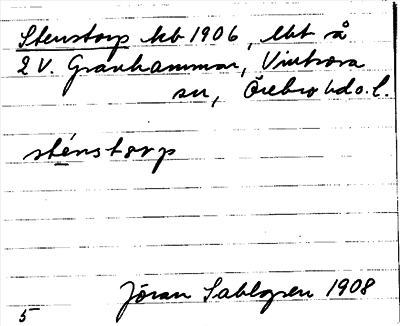 Stenstorp hb 1906, lht å
2 V. Granhammar, Vintrosa
sn, Örebro hd o. l.
sténstorp
Jöran Sahlgren 1908
5